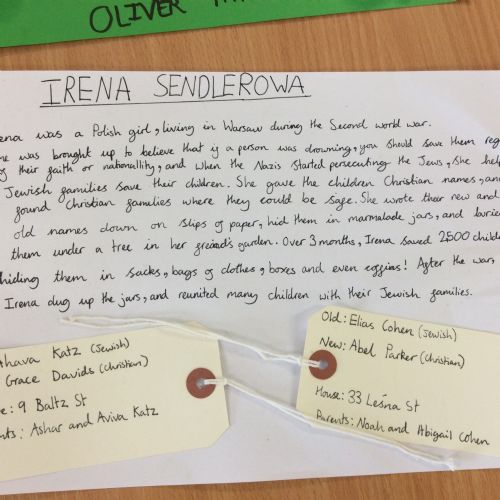 OLIVER
IRENA SENDLEROWA
ena was a Polish girl, living in Warsaw during the Second world war.
e was brought up to believe that if a person was drowning, you should save them reg
of their faith or nationallity, and when the Nazis started persecuting the Jews, she help
Jewish families save their children. She gave the children Christian names, and
found Christian families where they could be safe. She wrote their new and
old names down on slips of paper, hid them in marmalade jars, and burie
them under a tree in her freind's garden. Over 3 months, Irena saved 2500 childr
hiding them in sacks, bags of clothes, boxes and even coffins! After the war,
Irena dug up the jars, and reunited many children with their Jewish families.
hava Katz (Jewish)
Grace Davids (Christian)
e: 9 Baltz St
nts: Ashar and Aviva Katz
Old: Elias Cohen (Jewish)
New: Abel Parker (Christian)
House: 33 Leśna St
Parents: Noah and Abigail Cohen